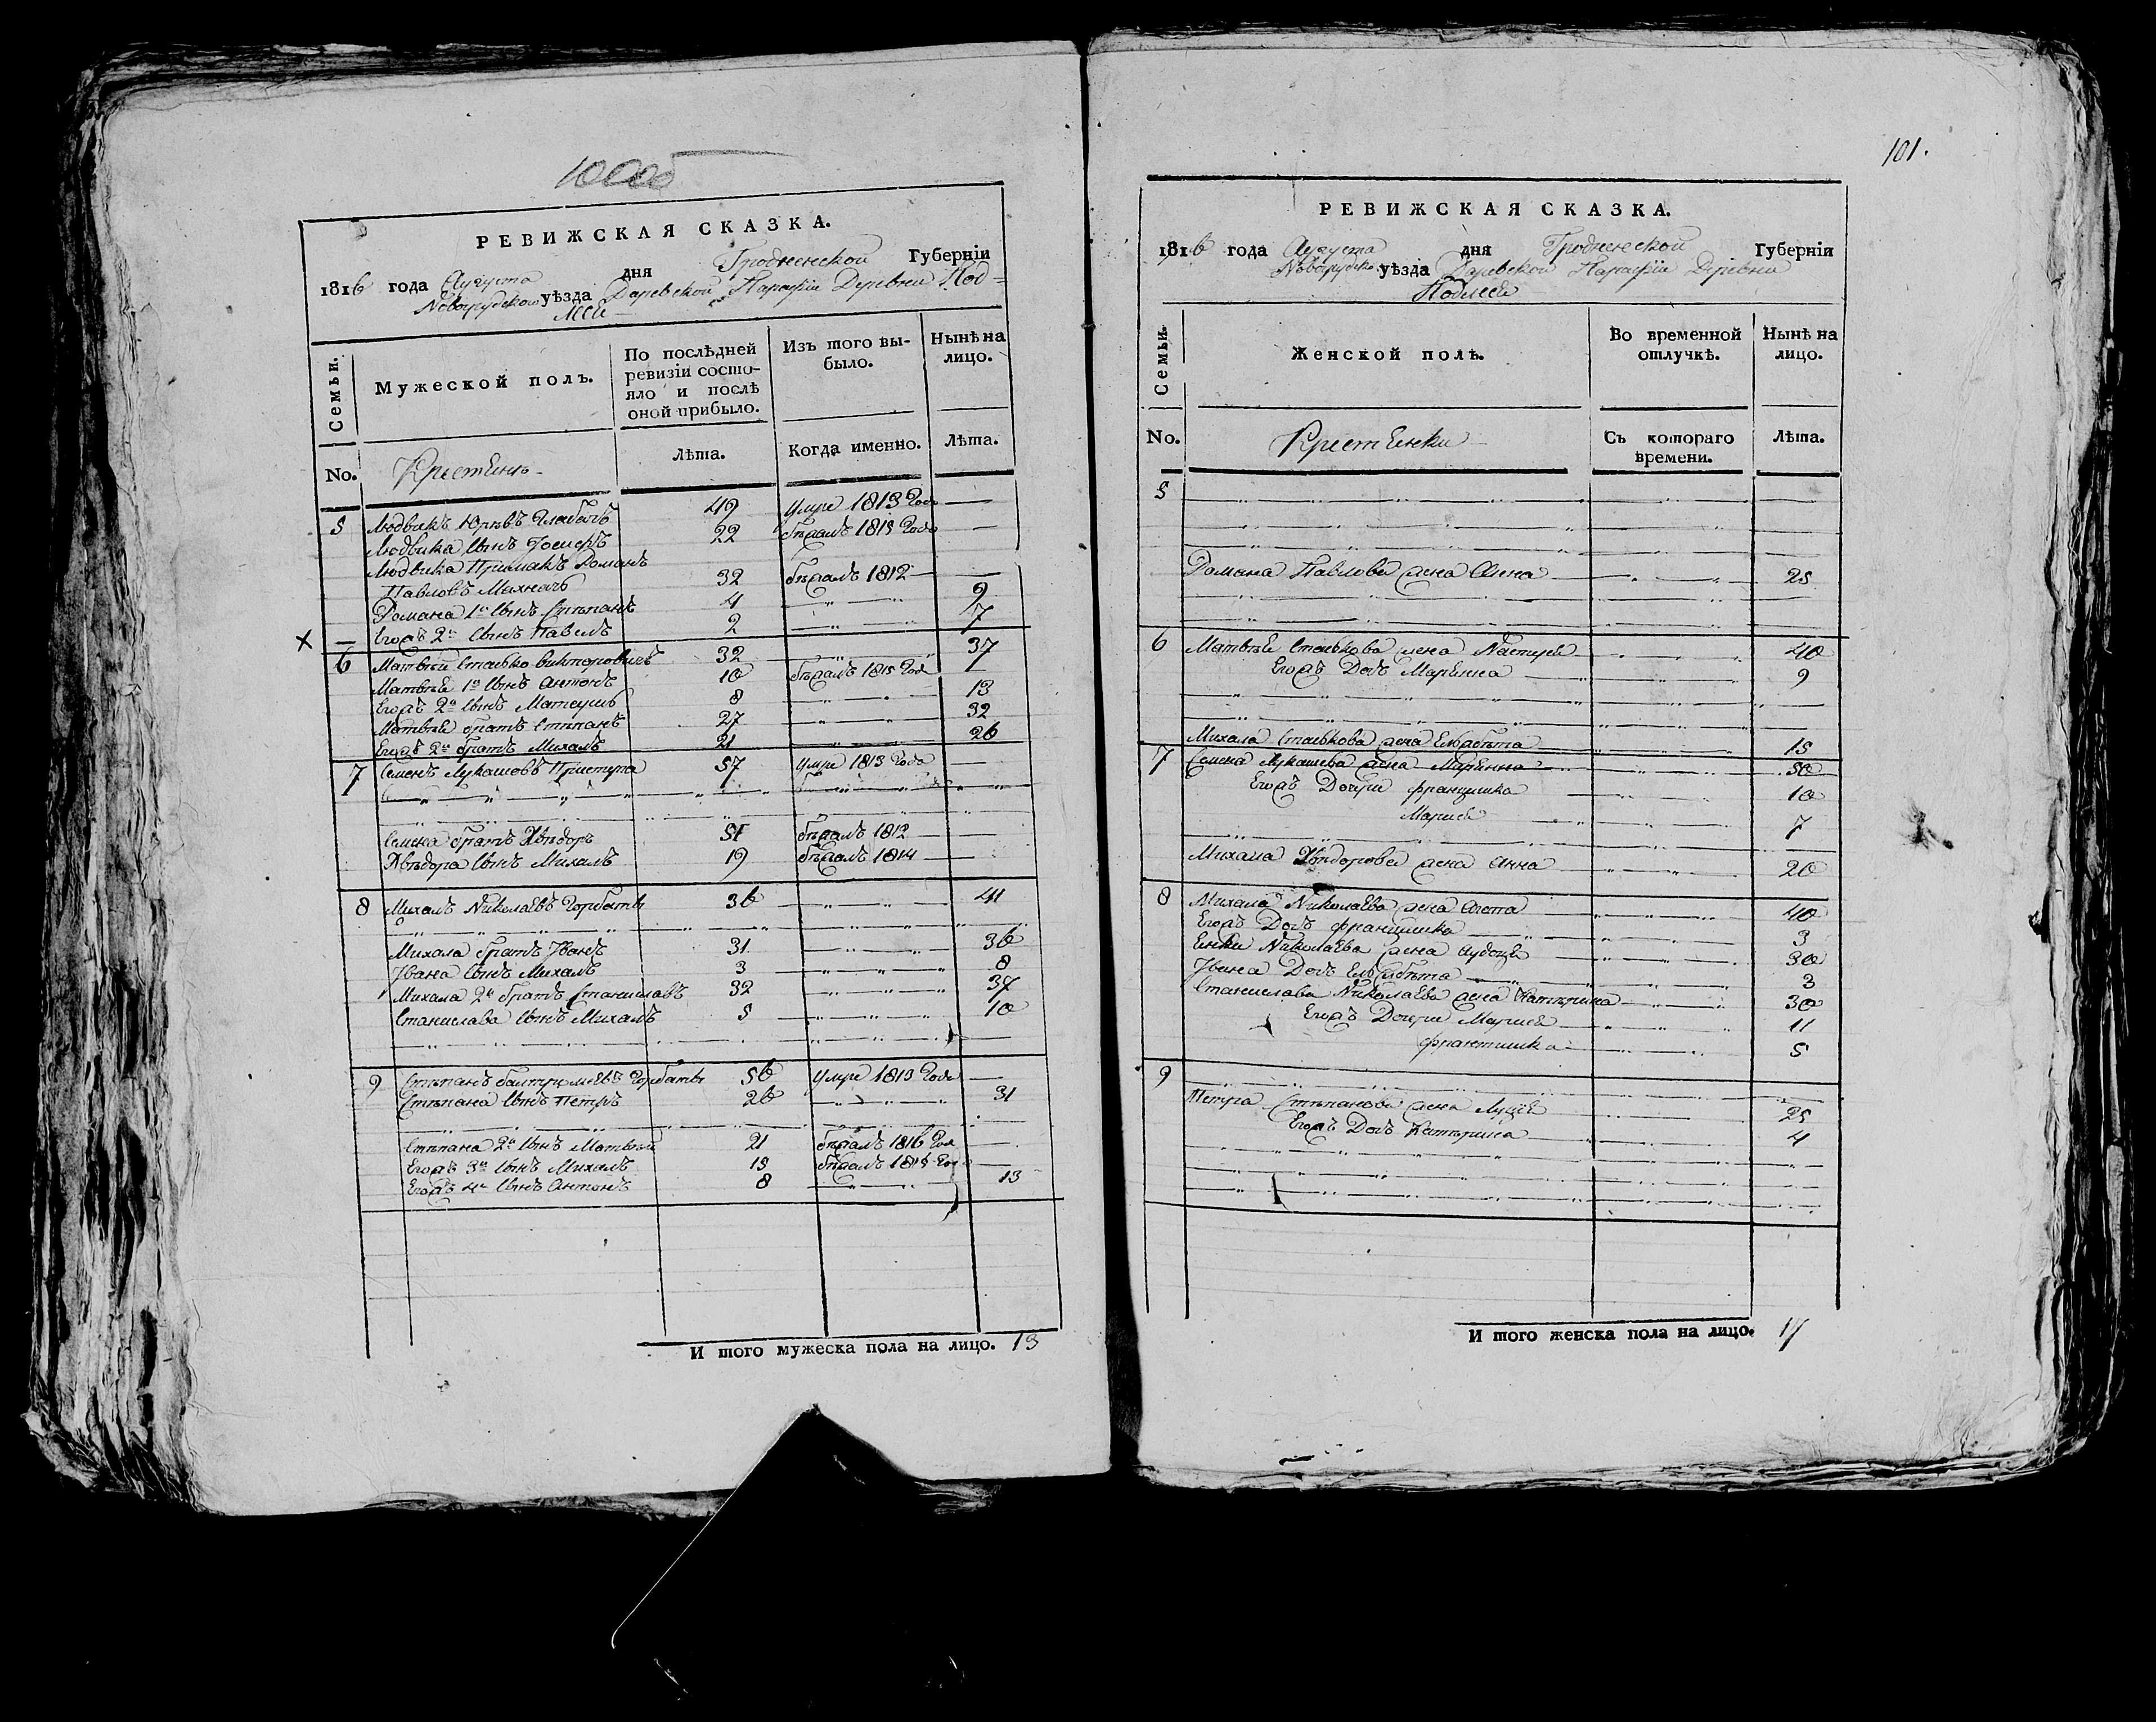 100об
РЕВИЖСКАЯ СКАЗКА.
1816 года Августа дня Гродненской Губерніи
Новогрудского уѣзда Даревской Парафіи Деревни Под=
леси
Семьи.
Мужеской полъ.
По послѣдней ревизіи состо-яло и послѣ оной прибыло.
Изъ того вы-было.
Нынѣ на лицо.
No.
Крестьянъ
Лѣта.
Когда именно.
Лѣта.
5 Людвикъ Юрьевъ 49 умре 1813 Года
Людвика сынъ 22 бѣгалъ 1815 Года
Людвика Примакъ Романъ
Павловъ Махначъ 32 бѣгалъ 1812
Романа 1й сынъ Стѣпанъ 4 9
Егожъ 2й сынъ Павелъ 2 7
Х
6 Матвѣй Станько Викторовичъ 32 37
Матвѣя 1й сынъ Антонъ 10 бѣгалъ 1815 Года
Егожъ 2й сынъ Матеушъ 8 13
Матвѣя братъ Стѣпанъ 27 32
Егожъ 2й братъ Михалъ 21 26
7 Семенъ Лукашовъ Приступа 57 умре 1813 Года
Семена братъ Хведоръ 51 бѣгалъ 1812
Хведора сынъ Михалъ 19 бѣгалъ 1814
8 Михалъ Николаевъ Горбатъ 36 41
Михала братъ Іванъ 31 36
Івана сынъ Михалъ 3 8
Михала 2й братъ Станиславъ 32 37
Станислава сынъ Михалъ 5 10
9 Стѣпанъ Балтромеевъ Горбатъ 56 умре 1813 Года
Стѣпана сынъ Петръ 26 31
Стѣпана 2й сынъ Матвѣй 21 бѣгалъ 1816 Года
Егожъ 3й сынъ Михалъ 15 бѣгалъ 1815 Года
Егожъ 4й сынъ Антонъ 8 13
И того мужеска пола на лицо. 13
101.
РЕВИЖСКАЯ СКАЗКА.
1816 года Августа дня Гродненской Губерніи
Новогрудско уѣзда Даревской Парафіи Деревни
Подлеси
Семьи.
Женской полъ.
Во временной отлучкѣ.
Нынѣ на лицо.
No.
Крестьянки
Съ котораго времени.
Лѣта.
5
Романа Павлова жена Анна 25
6 Матвѣя Станькова жена Настуся 40
Егожъ Дочь Марьянна 9
Михала Станькова жена Ельжбѣта 15
7 Семена Лукашева жена Марьянна 50
Егожъ Дочери Францишка 10
Марися 7
Михала Хведорова жена Анна 20
8 Михала Николаева жена Агата 40
Егожъ Дочь Францишка 3
Николаева жена Аудоця 30
Івана Дочь Ельжбѣта 3
Станислава Николаева жена Катѣрина 30
Егожъ Дочери Марися 11
Францишка 5
9
Петра Стѣпанова жена Луція 25
Егожъ Дочь Катѣрина 4
И того женска пола на лицо. 17